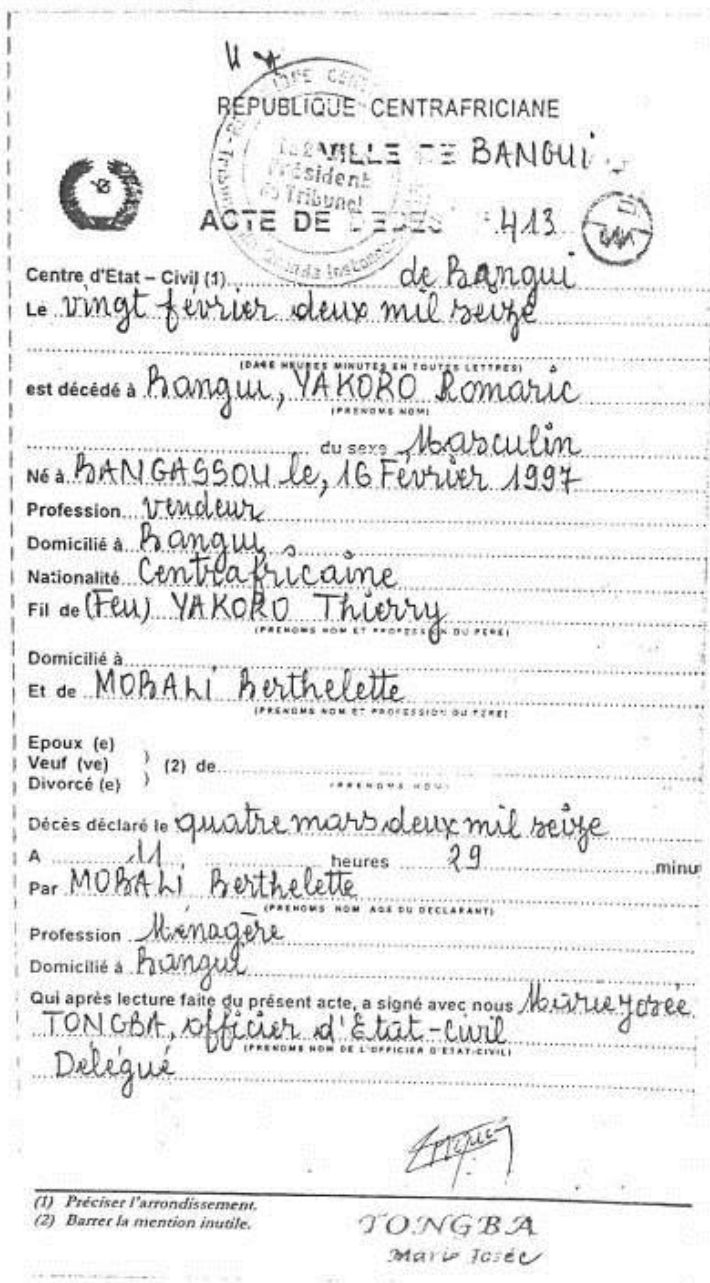 REPUBLIQUE CENTRAFRICIANE
VILLE DE BANGUI
Président
du Tribunal
ACTE DE DECES 413
Centre d'Etat – Civil (1) de Bangui
Le vingt fevrier deux mil seize
(DATE HEURES MINUTES EN TOUTES LETTRES)
est décédé à Bangui, YAKORO Romaric
(PRENOMS NOM)
du sexe Masculin
Né à BANGASSOU le, 16 Février 1997
Profession vendeur
Domicilié à Bangui
Nationalité Centrafricaine
Fil de (Feu) YAKORO Thierry
(PRENOMS NOM ET PROFESSION DU PERE)
Domicilié à
Et de MOBALI Berthelette
(PRENOMS NOM ET PROFESSION DU PERE)
Epoux (e)
Veuf (ve) ) (2) de
Divorcé (e) ) (PRENOMS NOM)
Décès déclaré le quatre mars deux mil seize
A 11 heures 29 minu
Par MOBALI Berthelette
(PRENOMS NOM AGE DU DECLARANT)
Profession Ménagère
Domicilié à Bangui
Qui après lecture faite du présent acte, a signé avec nous Marie Josée
TONGBA, officier d'Etat-civil
(PRENOMS NOM DE L'OFFICIER D'ETAT-CIVIL)
Délégué
(1) Préciser l'arrondissement.
(2) Barrer la mention inutile.
TONGBA
Marie Josée